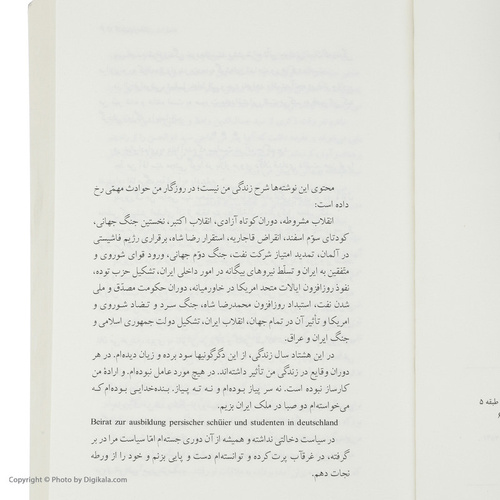 محتوی این نوشته‌ها شرح زندگی من نیست؛ در روزگار من حوادث مهمّی رخ
داده است:
انقلاب مشروطه، دوران کوتاه آزادی، انقلاب اکتبر، نخستین جنگ جهانی،
کودتای سوّم اسفند، انقراض قاجاریه، استقرار رضا شاه، برقراری رژیم فاشیستی
در آلمان، تمدید امتیاز شرکت نفت، جنگ دوّم جهانی، ورود قوای شوروی و
متّفقین به ایران و تسلّط نیروهای بیگانه در امور داخلی ایران، تشکیل حزب توده،
نفوذ روزافزون ایالات متحد امریکا در خاورمیانه، دوران حکومت مصدّق و ملی
شدن نفت، استبداد روزافزون محمدرضا شاه، جنگ سرد و تضاد شوروی و
امریکا و تأثیر آن در تمام جهان، انقلاب ایران، تشکیل دولت جمهوری اسلامی و
جنگ ایران و عراق.
در این هشتاد سال زندگی، از این دگرگونیها سود برده و زیان دیده‌ام. در هر
دوران وقایع در زندگی من تأثیر داشته‌اند. در هیچ مورد عامل نبوده‌ام. و ارادهٔ من
کارساز نبوده است. نه سر پیاز بوده‌ام و نه ته پیاز. بنده‌خدایی بوده‌ام که
می‌خواسته‌ام دو صبا در ملک ایران بزیم.
Beirat zur ausbildung persischer schüier und studenten in deutschland
در سیاست دخالتی نداشته و همیشه از آن دوری جسته‌ام امّا سیاست مرا در بر
گرفته، در غرقآب پرت کرده و توانسته‌ام دست و پایی بزنم و خود را از ورطه
نجات دهم.
طبقه ۵
Copyright © Photo by Digikala.com